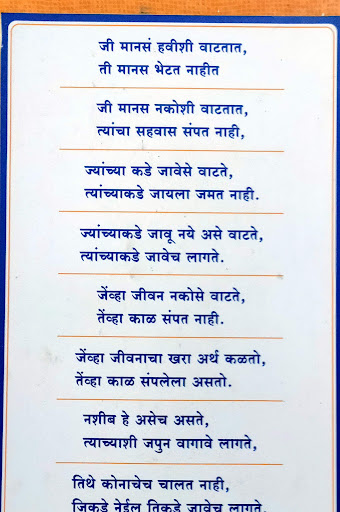 जी मानसं हवीशी वाटतात,
ती मानस भेटत नाहीत
जी मानस नकोशी वाटतात,
त्यांचा सहवास संपत नाही,
ज्यांच्या कडे जावेसे वाटते,
त्यांच्याकडे जायला जमत नाही.
ज्यांच्याकडे जावू नये असे वाटते,
त्यांच्याकडे जावेच लागते.
जेंव्हा जीवन नकोसे वाटते,
तेंव्हा काळ संपत नाही.
जेंव्हा जीवनाचा खरा अर्थ कळतो,
तेंव्हा काळ संपलेला असतो.
नशीब हे असेच असते,
त्याच्याशी जपुन वागावे लागते,
तिथे कोनाचेच चालत नाही,
जिकडे नेईल तिकडे जावेच लागते.